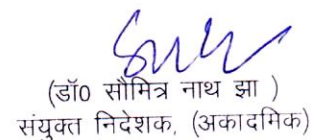 (डॉ0 सौमित्र नाथ झा )
संयुक्त निदेशक, (अकादमिक)